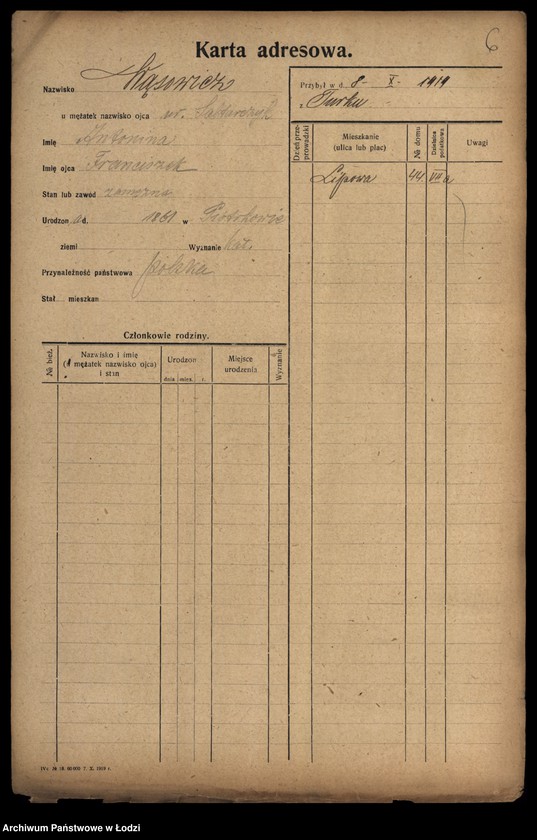 6
Karta adresowa.
Nazwisko Wąsowicz
u mężatek nazwisko ojca ur.
Imię Antonina
Imię ojca Franciszek
Stan lub zawód zamężna
Urodzon a d. 1861 w Piotrkowie
ziemi Wyznanie kat.
Przynależność państwowa polska
Stał mieszkan
Przybył w d. 8- X- 1919
z Turku
Dzień przeprowadzki
Mieszkanie (ulica lub plac)
№ domu
Dzielnica podatkowa
Uwagi
Lipowa 44 VII a
Członkowie rodziny.
№ bież.
Nazwisko i imię (u mężatek nazwisko ojca) i stan
Urodzon
dnia mies. r.
Miejsce urodzenia
Wyznanie
Archiwum Państwowe w Łodzi